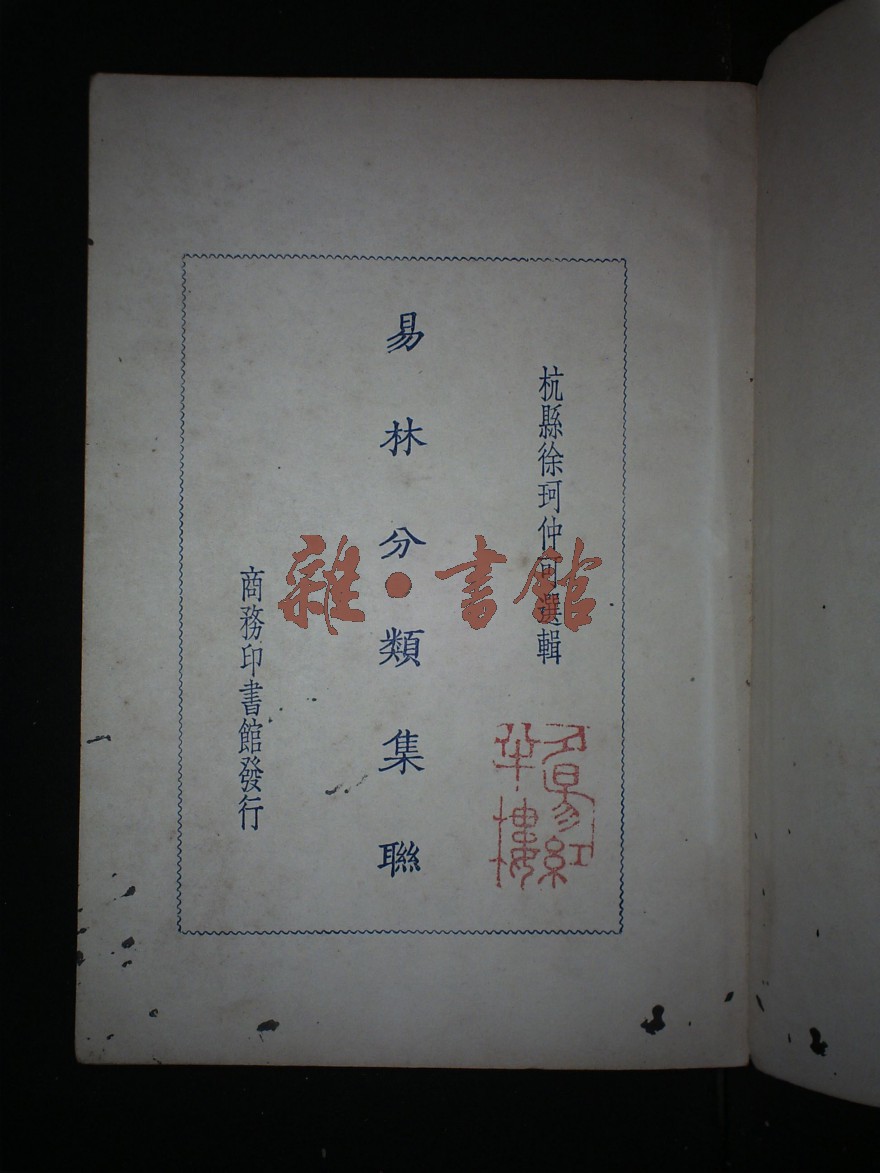 杭縣徐珂仲可選輯
易林分類集聯
商務印書館發行
雜·書館
夕陽紅
半樓